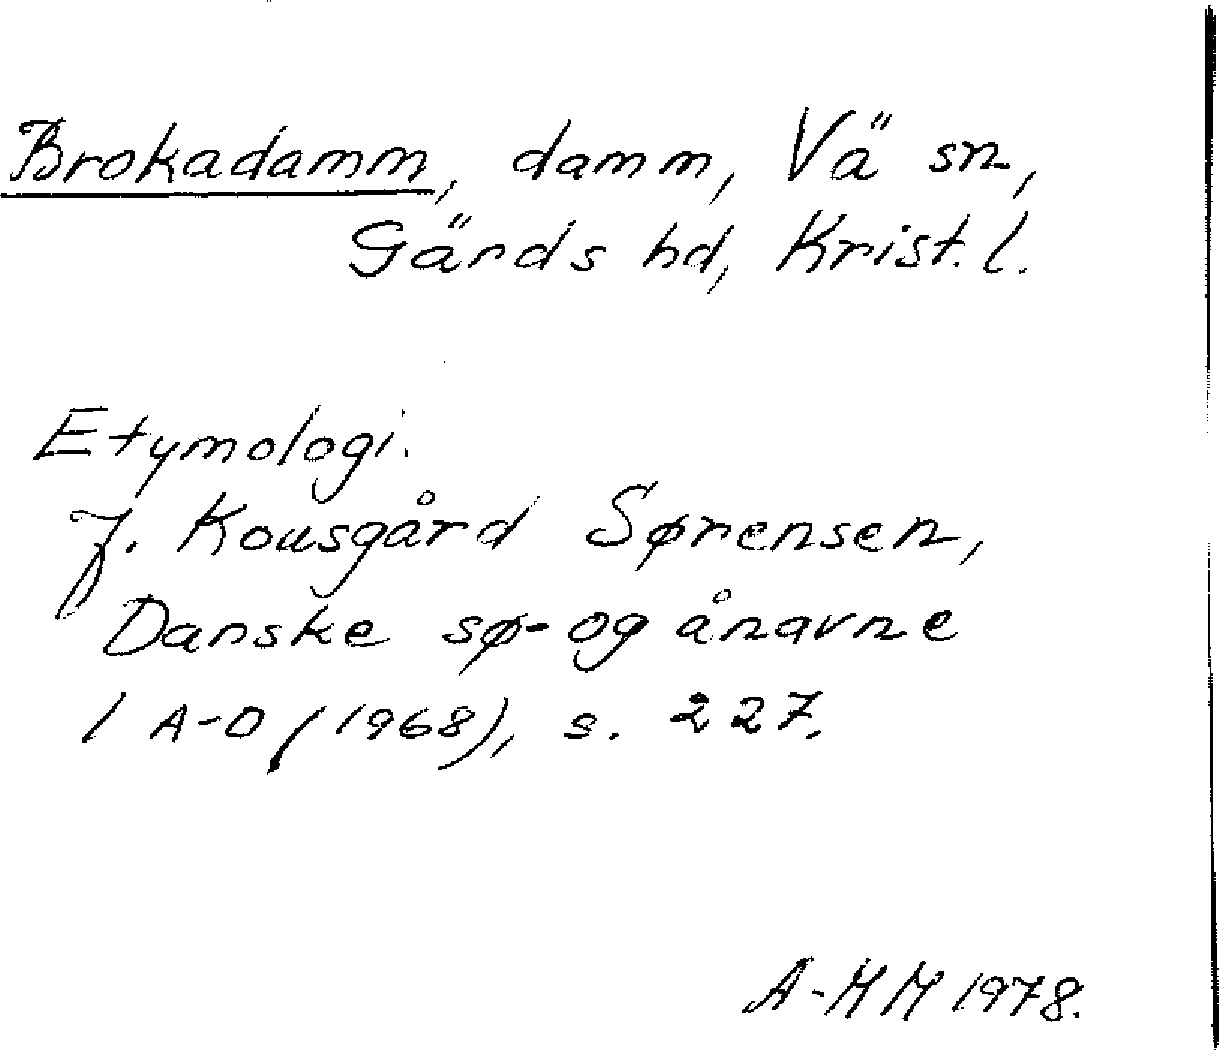 Brokadamm, damm, Vä sn,
Gärds hd, Krist. l.
Etymologi:
J. Kousgård Sørensen,
Danske sø- og ånavne
1 A-D (1968), s. 227.
A-MM 1978.